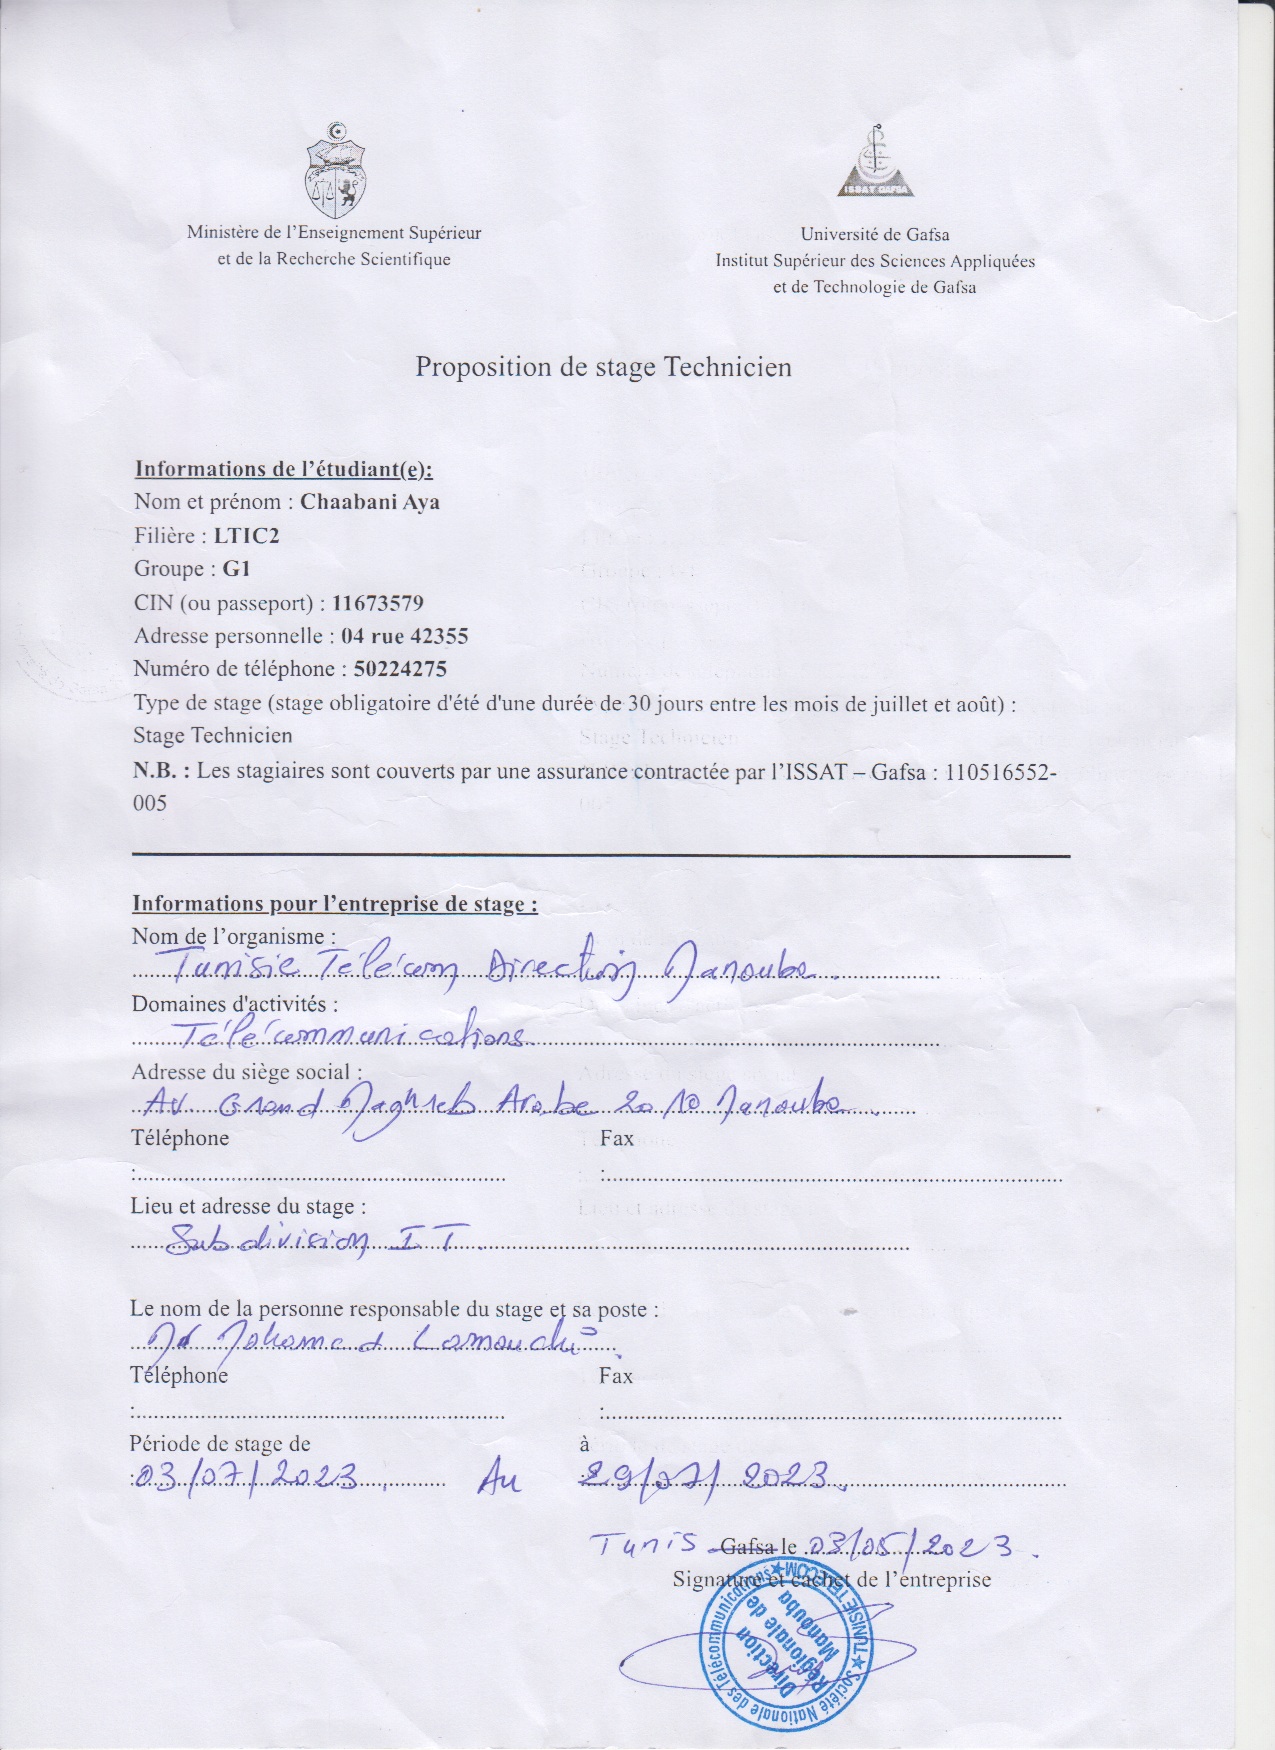 ISSAT GAFSA
Ministère de l'Enseignement Supérieur
et de la Recherche Scientifique
Université de Gafsa
Institut Supérieur des Sciences Appliquées
et de Technologie de Gafsa
Proposition de stage Technicien
Informations de l'étudiant(e):
Nom et prénom : Chaabani Aya
Filière : LTIC2
Groupe : G1
CIN (ou passeport) : 11673579
Adresse personnelle : 04 rue 42355
Numéro de téléphone : 50224275
Type de stage (stage obligatoire d'été d'une durée de 30 jours entre les mois de juillet et août) :
Stage Technicien
N.B. : Les stagiaires sont couverts par une assurance contractée par l'ISSAT – Gafsa : 110516552-
005
Informations pour l'entreprise de stage :
Nom de l'organisme :
Tunisie Télécom Direction Manouba.
Domaines d'activités :
Télécommunications
Adresse du siège social :
AV. Grand Maghreb Arabe 2010 Manouba.
Téléphone Fax
: :
Lieu et adresse du stage :
Subdivision IT.
Le nom de la personne responsable du stage et sa poste :
Mohamed Lamouchi.
Téléphone Fax
: :
Période de stage de à
:03/07/2023 Au :29/07/2023.
Tunis Gafsa le 03/05/2023.
Signature et cachet de l'entreprise
Société Nationale des Télécommunications ★ TUNISIE TELECOM ★
Direction
Régionale de
Manouba